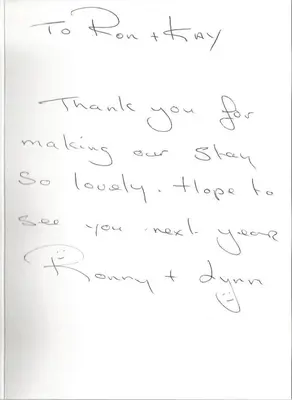 To Ron + Kay
Thank you for
making our stay
so lovely. Hope to
see you next year
Ronny + Lynn